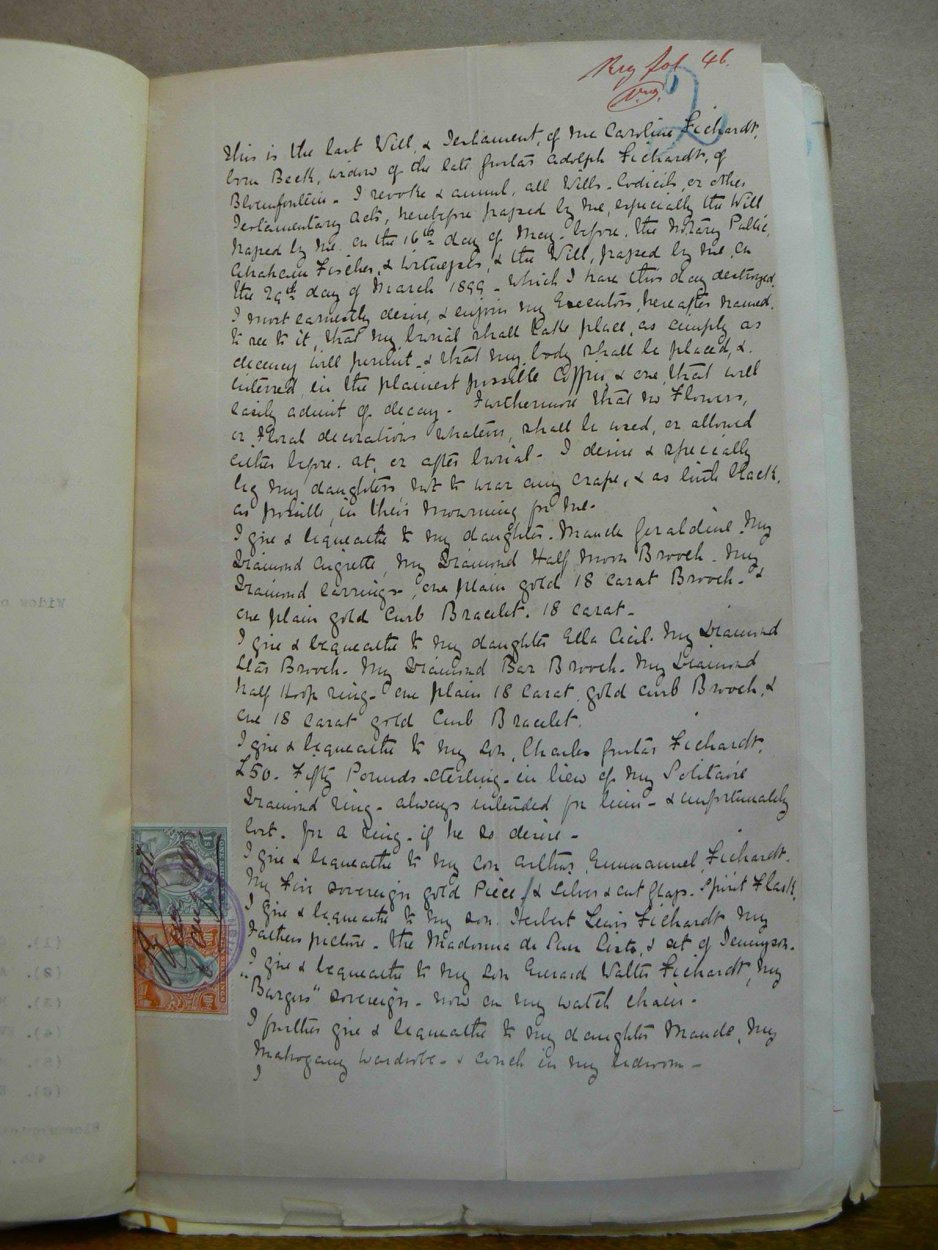 Reg fol 46.
2
This is the last Will, & Testament, of me Caroline Fichardt,
born Beck, widow of the late Gustav Adolph Fichardt, of
Bloemfontein - I revoke & annul, all Wills - Codicils, or other
Testamentary Acts, heretofore passed by me, especially the Will
passed by me on the 16th day of May - before, the Notary Public,
Abraham Fischer, & Witnesses, & the Will, passed by me, on
the 29th day of March 1899 - which I have this day destroyed.
I most earnestly desire, & enjoin my Executors, hereafter named.
to see to it, that my burial shall take place, as simply as
decency will permit - & that my body shall be placed, &
interred, in the plainest possible Coffin, & one, that will
easily admit of decay - Furthermore that no Flowers,
or Floral decorations whatever, shall be used, or allowed
either before. at, or after burial - I desire & specially
beg my daughters not to wear any crape, & as little black,
as possible, in their mourning for me -
I give & bequeathe to my daughter - Maude Geraldine - My
Diamond Aigrette, my Diamond Half Moon Brooch - My
Diamond Earrings -, one plain gold 18 carat Brooch - &
one plain gold Curb Bracelet. 18 carat -
I give & bequeathe to my daughter Ella Cecil - My Diamond
Star Brooch - My Diamond Bar Brooch - My Diamond
half Hoop ring - one plain 18 carat gold curb Brooch, &
one 18 carat gold Curb Bracelet.
I give & bequeathe to my son, Charles Gustav Fichardt,
£50 - Fifty Pounds - sterling - in lieu of my Solitaire
Diamond ring - always intended for him - & unfortunately
lost - for a ring - if he so desire -
I give & bequeathe to my son Arthur, Emmanuel, Fichardt.
My Five sovereign gold Piece, & Silver & cut glass - Spirit Flask,
I give & bequeathe to my son Herbert Lewis Fichardt my
Fathers picture - the Madonna de San Sisto, & set of Tennyson -
I give & bequeathe to my son Everard Walter Fichardt, my
"Burgers" sovereign - now on my watch chain -
I further give & bequeathe to my daughter Maude, my
Mahogany wardrobe - & couch in my bedroom -
I